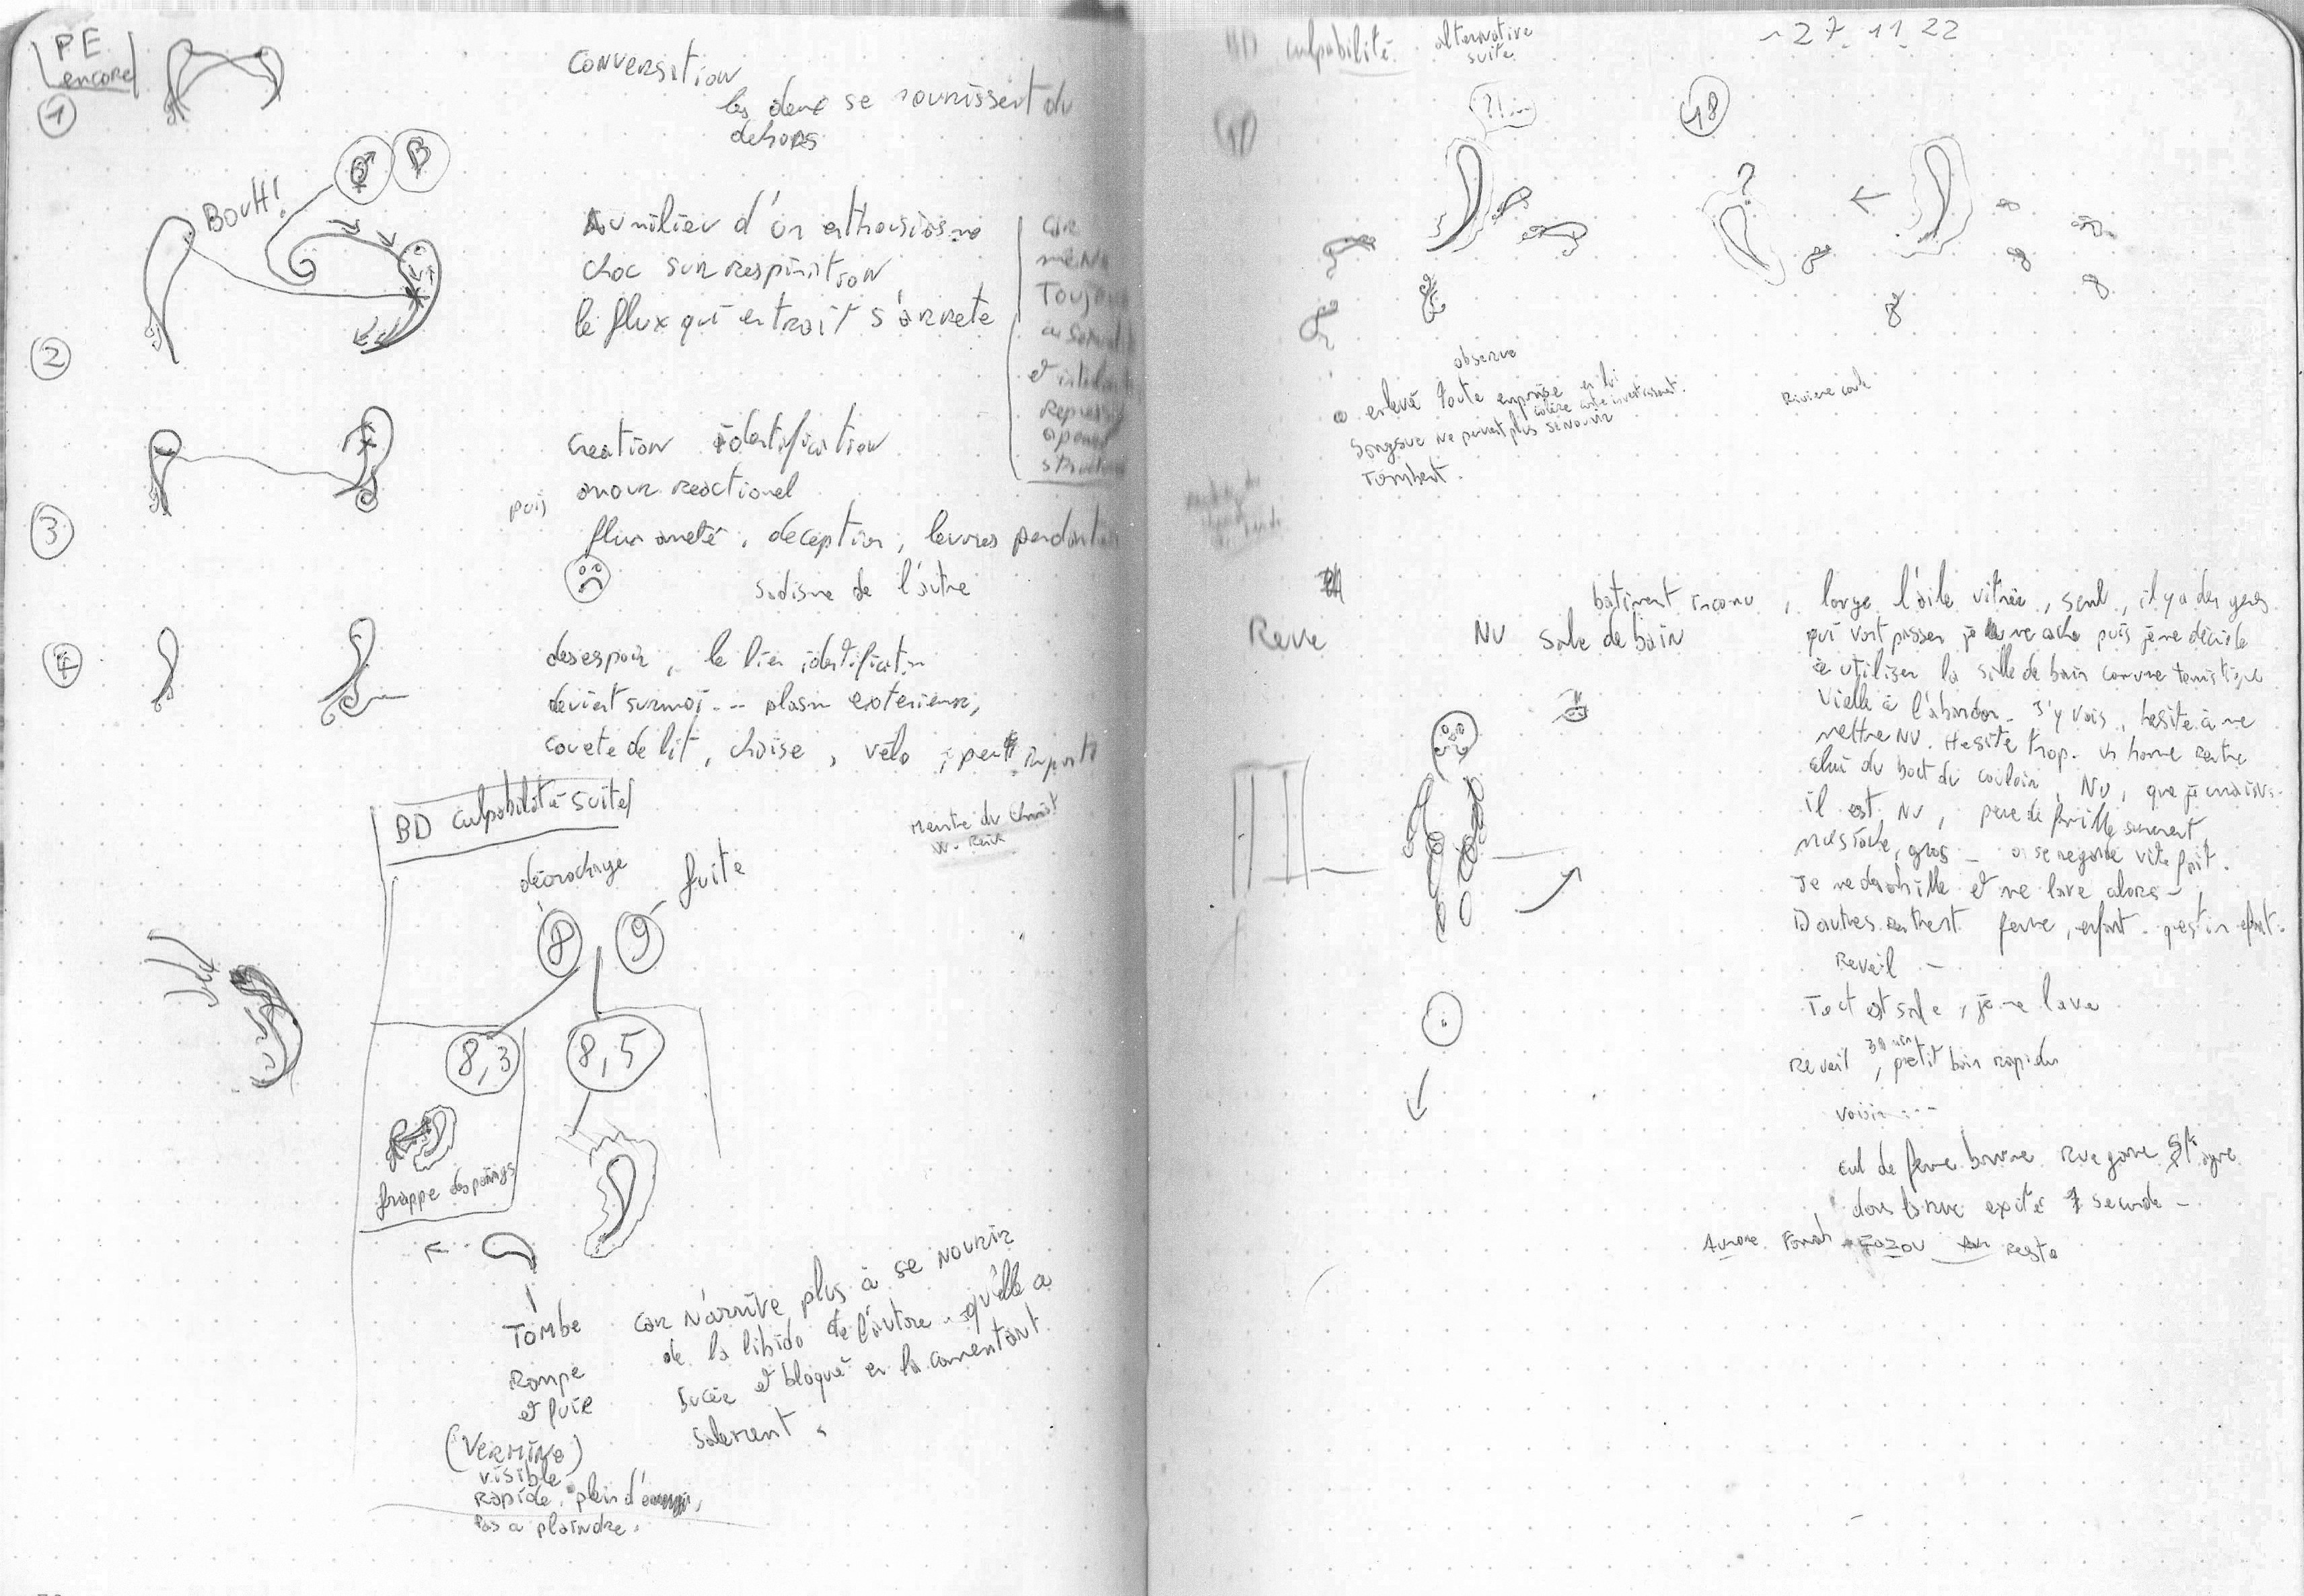 PE
encore
1
conversation
les deux se nourissent du
dehors
BOUH!
Au milieu d'un enthousiasme
choc sur respiration
le flux qui entrait s'arrete
2
car
mène
creation identification
amour reactionel
puis
flux arreté, deception, levres pendantes
sadisme de l'autre
3
4
desespoir, le lien identification
devient surmoi... plasm exterieur,
couete de lit, chaise, vélo, peu
BD culpabilité suite
Meurtre du Christ
W. Reich
décrochage
fuite
8
9
8,3
8,5
frappe des poings
Tombe
Rompe
et fuir
(VERMINE)
visible
rapide, plein d'
pas a plaindre.
car n'arrive plus à se nourir
de la libido de l'autre qu'elle a
sucée et bloqué en la commentant
salement.
BD culpabilité alternative
suite
~27.11.22
?!...
18
observe
enlevé toute emprise en lui
colère contre investissement.
Sangsue ne peuvent plus se nourir
Tombent.
Riviere coule
Reve
NU
batiment inconu,
Salle de bain
large l'aile vitrée, seul, il y a des gens
qui vont passer je me cache puis je me décide
à utiliser la salle de bain comme touristique
vielle à l'abandon. J'y vais, hesite à me
mettre NU. Hesite trop. Un home rentre
celui du bout du couloir, NU, que je
il est NU, pere de famille surement,
mustache, gros - on se regarde vite fait.
Je me deshabille et me lave alors -
D'autres rentrent femme, enfant.
Reveil -
Tout est sale, je me lave
30 min
Reveil, petit bain rapide
voisin...
cul de femme bonne rue gare
dans la rue exité 1 seconde -
reste